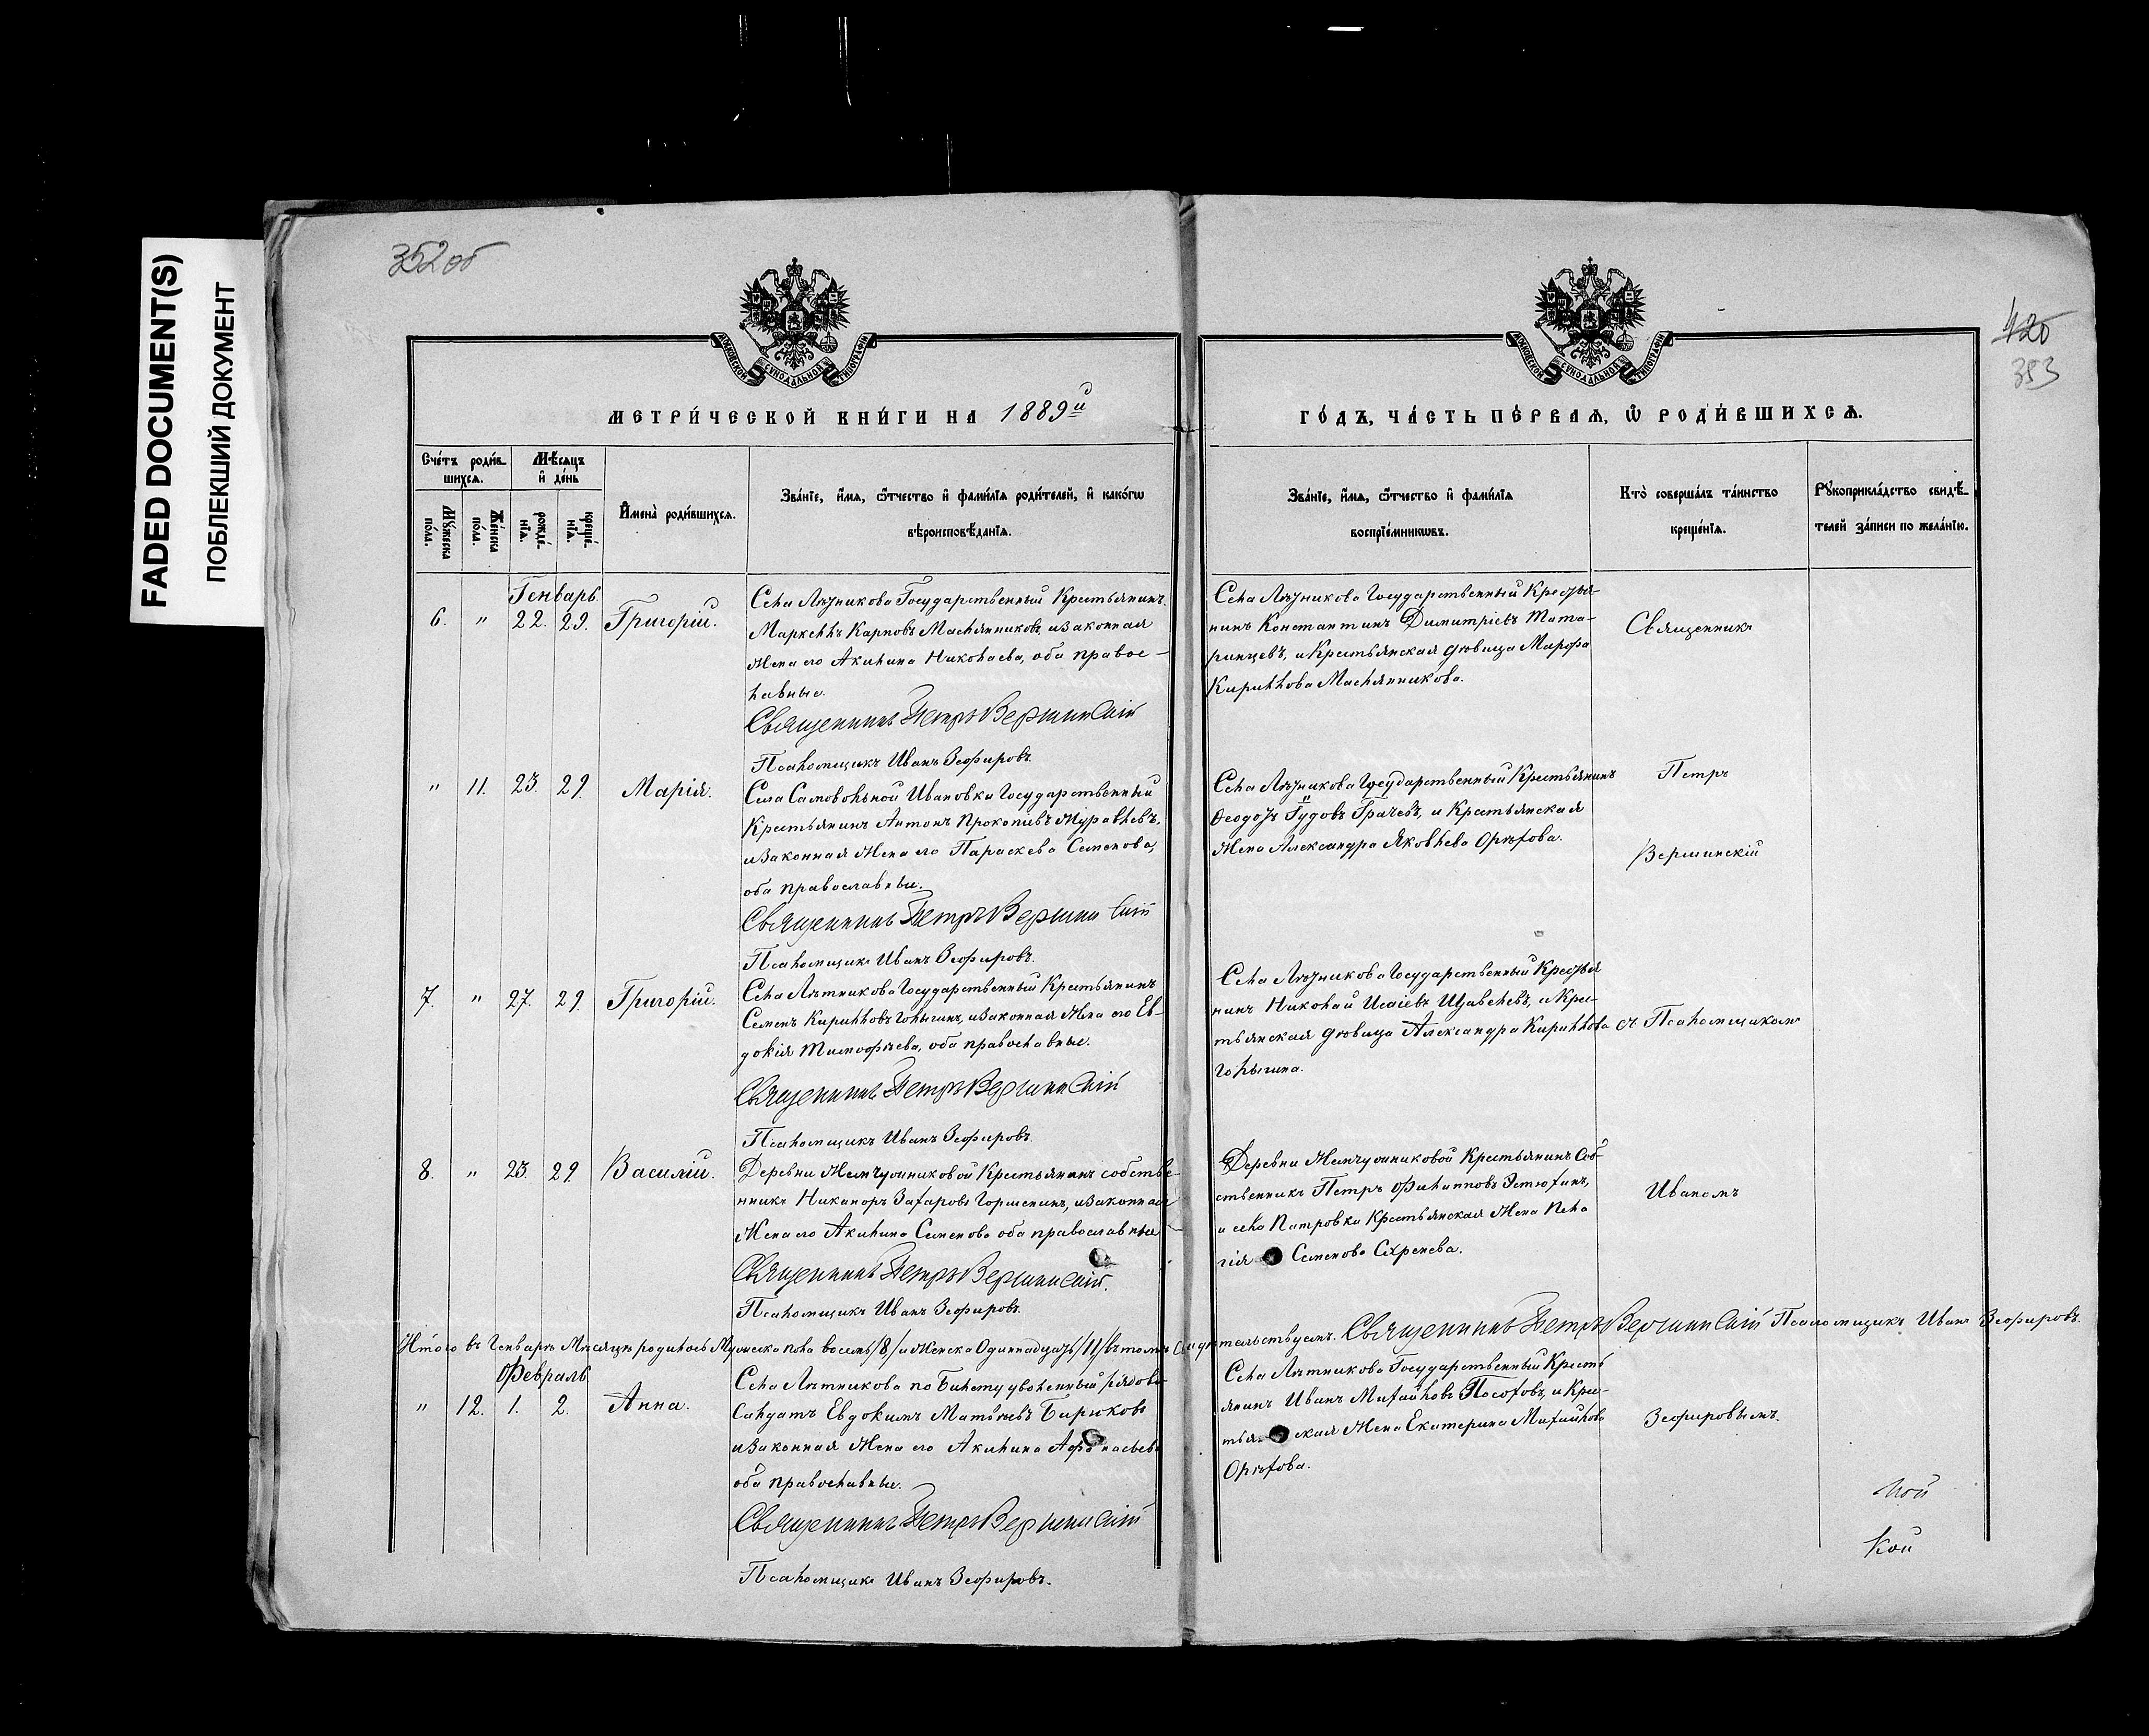 FADED DOCUMENT(S)
ПОБЛЕКШИЙ ДОКУМЕНТ
352об
420
353
МОСКОВСКОЙ СѴНОДАЛЬНОЙ ТИПОГРАФІИ
МОСКОВСКОЙ СѴНОДАЛЬНОЙ ТИПОГРАФІИ
МЕТРИ́ЧЕСКОЙ КНИ́ГИ НА 1889й
ГО́ДЪ, ЧА́СТЬ ПЕ́РВАѦ, Ѿ РОДИ́ВШИХСѦ.
Сче́тъ роди́в-
шихсѧ.
Мѣ́сѧцъ
и҆ де́нь
Мꙋ́жеска
по́ла.
Же́нска
по́ла.
рожде́-
нїѧ.
креще́-
нїѧ.
И҆мена̀ роди́вшихсѧ.
Зва́нїе, и҆́мѧ, ѻ҆́тчество и҆ фами́лїѧ роди́телей, и҆ како́гѡ
вѣроисповѣ́данїѧ.
Зва́нїе, и҆́мѧ, ѻ҆́тчество и҆ фами́лїѧ
воспрїе́мникѡвъ.
Кто̀ соверша́лъ та́инство
креще́нїѧ.
Рꙋкоприкла́дство свидѣ́-
телей за́писи по жела́нїю.
Генварь.
6. " 22. 29. Григорій.
Села Лѣтникова Государственный Крестьянинъ
Маркеллъ Карповъ Маслянниковъ, и законная
жена его Акилина Николаева, оба правос-
лавные.
Священникъ Петръ Вершинскій
Псаломщикъ Иванъ Зефировъ.
Села Лѣтникова Государственный Крестья-
нинъ Константинъ Димитріевъ Тата-
ринцевъ, и Крестьянская дѣвица Марфа
Кириллова Маслянникова.
Священникъ
" 11. 23. 29. Марія.
Села Самовольной Ивановки Государственный
Крестьянинъ Антонъ Прокопіевъ Журавлевъ,
и законная жена его Параскева Семенова,
оба православные.
Священникъ Петръ Вершинскій
Псаломщикъ Иванъ Зефировъ.
Села Лѣтникова Государственный Крестьянинъ
Грачевъ, и Крестьянская
жена Александра Яковлева Орѣхова.
Петръ
Вершинскій
7. " 27. 29. Григорій.
Села Лѣтникова Государственный Крестьянинъ
Семенъ Кирилловъ Голыгинъ, и законная жена его Ев-
докія Тимофѣева, оба православные.
Священникъ Петръ Вершинскій
Псаломщикъ Иванъ Зефировъ.
Села Лѣтникова Государственный Крестья
нинъ Николай Исаіевъ Щавелевъ, и Крес-
тьянская дѣвица Александра Кириллова
Голыгина.
съ Псаломщикомъ
8. " 23. 29. Василій.
Деревни Жемчужниковой Крестьянинъ собстве-
нникъ Никаноръ Захаровъ Горшенинъ, и законная
жена его Акилина Семенова оба православные
Священникъ Петръ Вершинскій.
Псаломщикъ Иванъ Зефировъ.
Деревни Жемчужниковой Крестьянинъ Соб-
ственникъ Петръ Филипповъ Эстюхинъ,
и села Патровки Крестьянская жена Пела
гія Семенова
Иваномъ
Итого въ Генварѣ Мѣсяцѣ родилось Мужеска пола восемь /8/ и Женска Одиннадцать /11/ въ томъ Свидѣтельствуемъ. Священникъ Петръ Вершинскій Псаломщикъ Иванъ Зефировъ.
Февраль
" 12. 1. 2. Анна.
Села Лѣтникова по Билету уволенный рядово
Салдатъ Евдокимъ Матѳіевъ Бирюковъ
и законная жена его Акилина Афонасьева
оба православные.
Священникъ Петръ Вершинскій
Псаломщикъ Иванъ Зефировъ.
Села Лѣтникова Государственный Кресть
янинъ Иванъ Михайловъ Полоховъ, и Крес-
тья- ская жена Екатерина Михайлова
Орѣхова.
Зефировымъ.